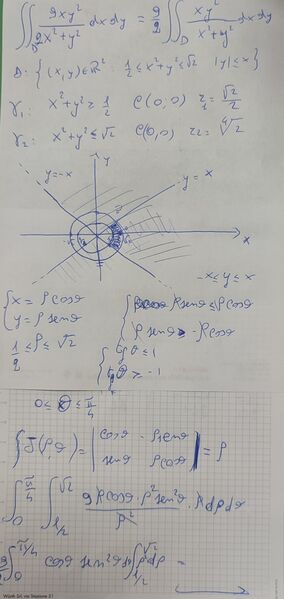 ∬_D 9xy²/(2x²+y²) dxdy = 9/2 ∬_D xy²/(x²+y²) dxdy
D: {(x,y)∈ℝ² 1/2 ≤ x²+y² ≤ √2 |y| ≤ x}
γ₁: x²+y² ≥ 1/2 C(0,0) r₁ = √2/2
γ₂: x²+y² ≤ √2 C(0,0) r₂ = ⁴√2
y
y=-x
y = x
x
-x ≤ y ≤ x
{ x = ρ cosθ
y = ρ senθ
{ ρ senθ ≤ ρ cosθ
ρ senθ ≥ -ρ cosθ
1/2 ≤ ρ ≤ √2
{ tgθ ≤ 1
tgθ ≥ -1
0 ≤ θ ≤ π/4
J(ρ,θ) = | cosθ -ρ senθ
senθ ρ cosθ | = ρ
∫₀^{π/4} ∫_{1/2}^{√2} 9ρcosθ · ρ² sen²θ / ρ² · ρ dρ dθ
9/2 ∫₀^{π/4} cosθ sen²θ ∫_{1/2}^{√2} ρ dρ =